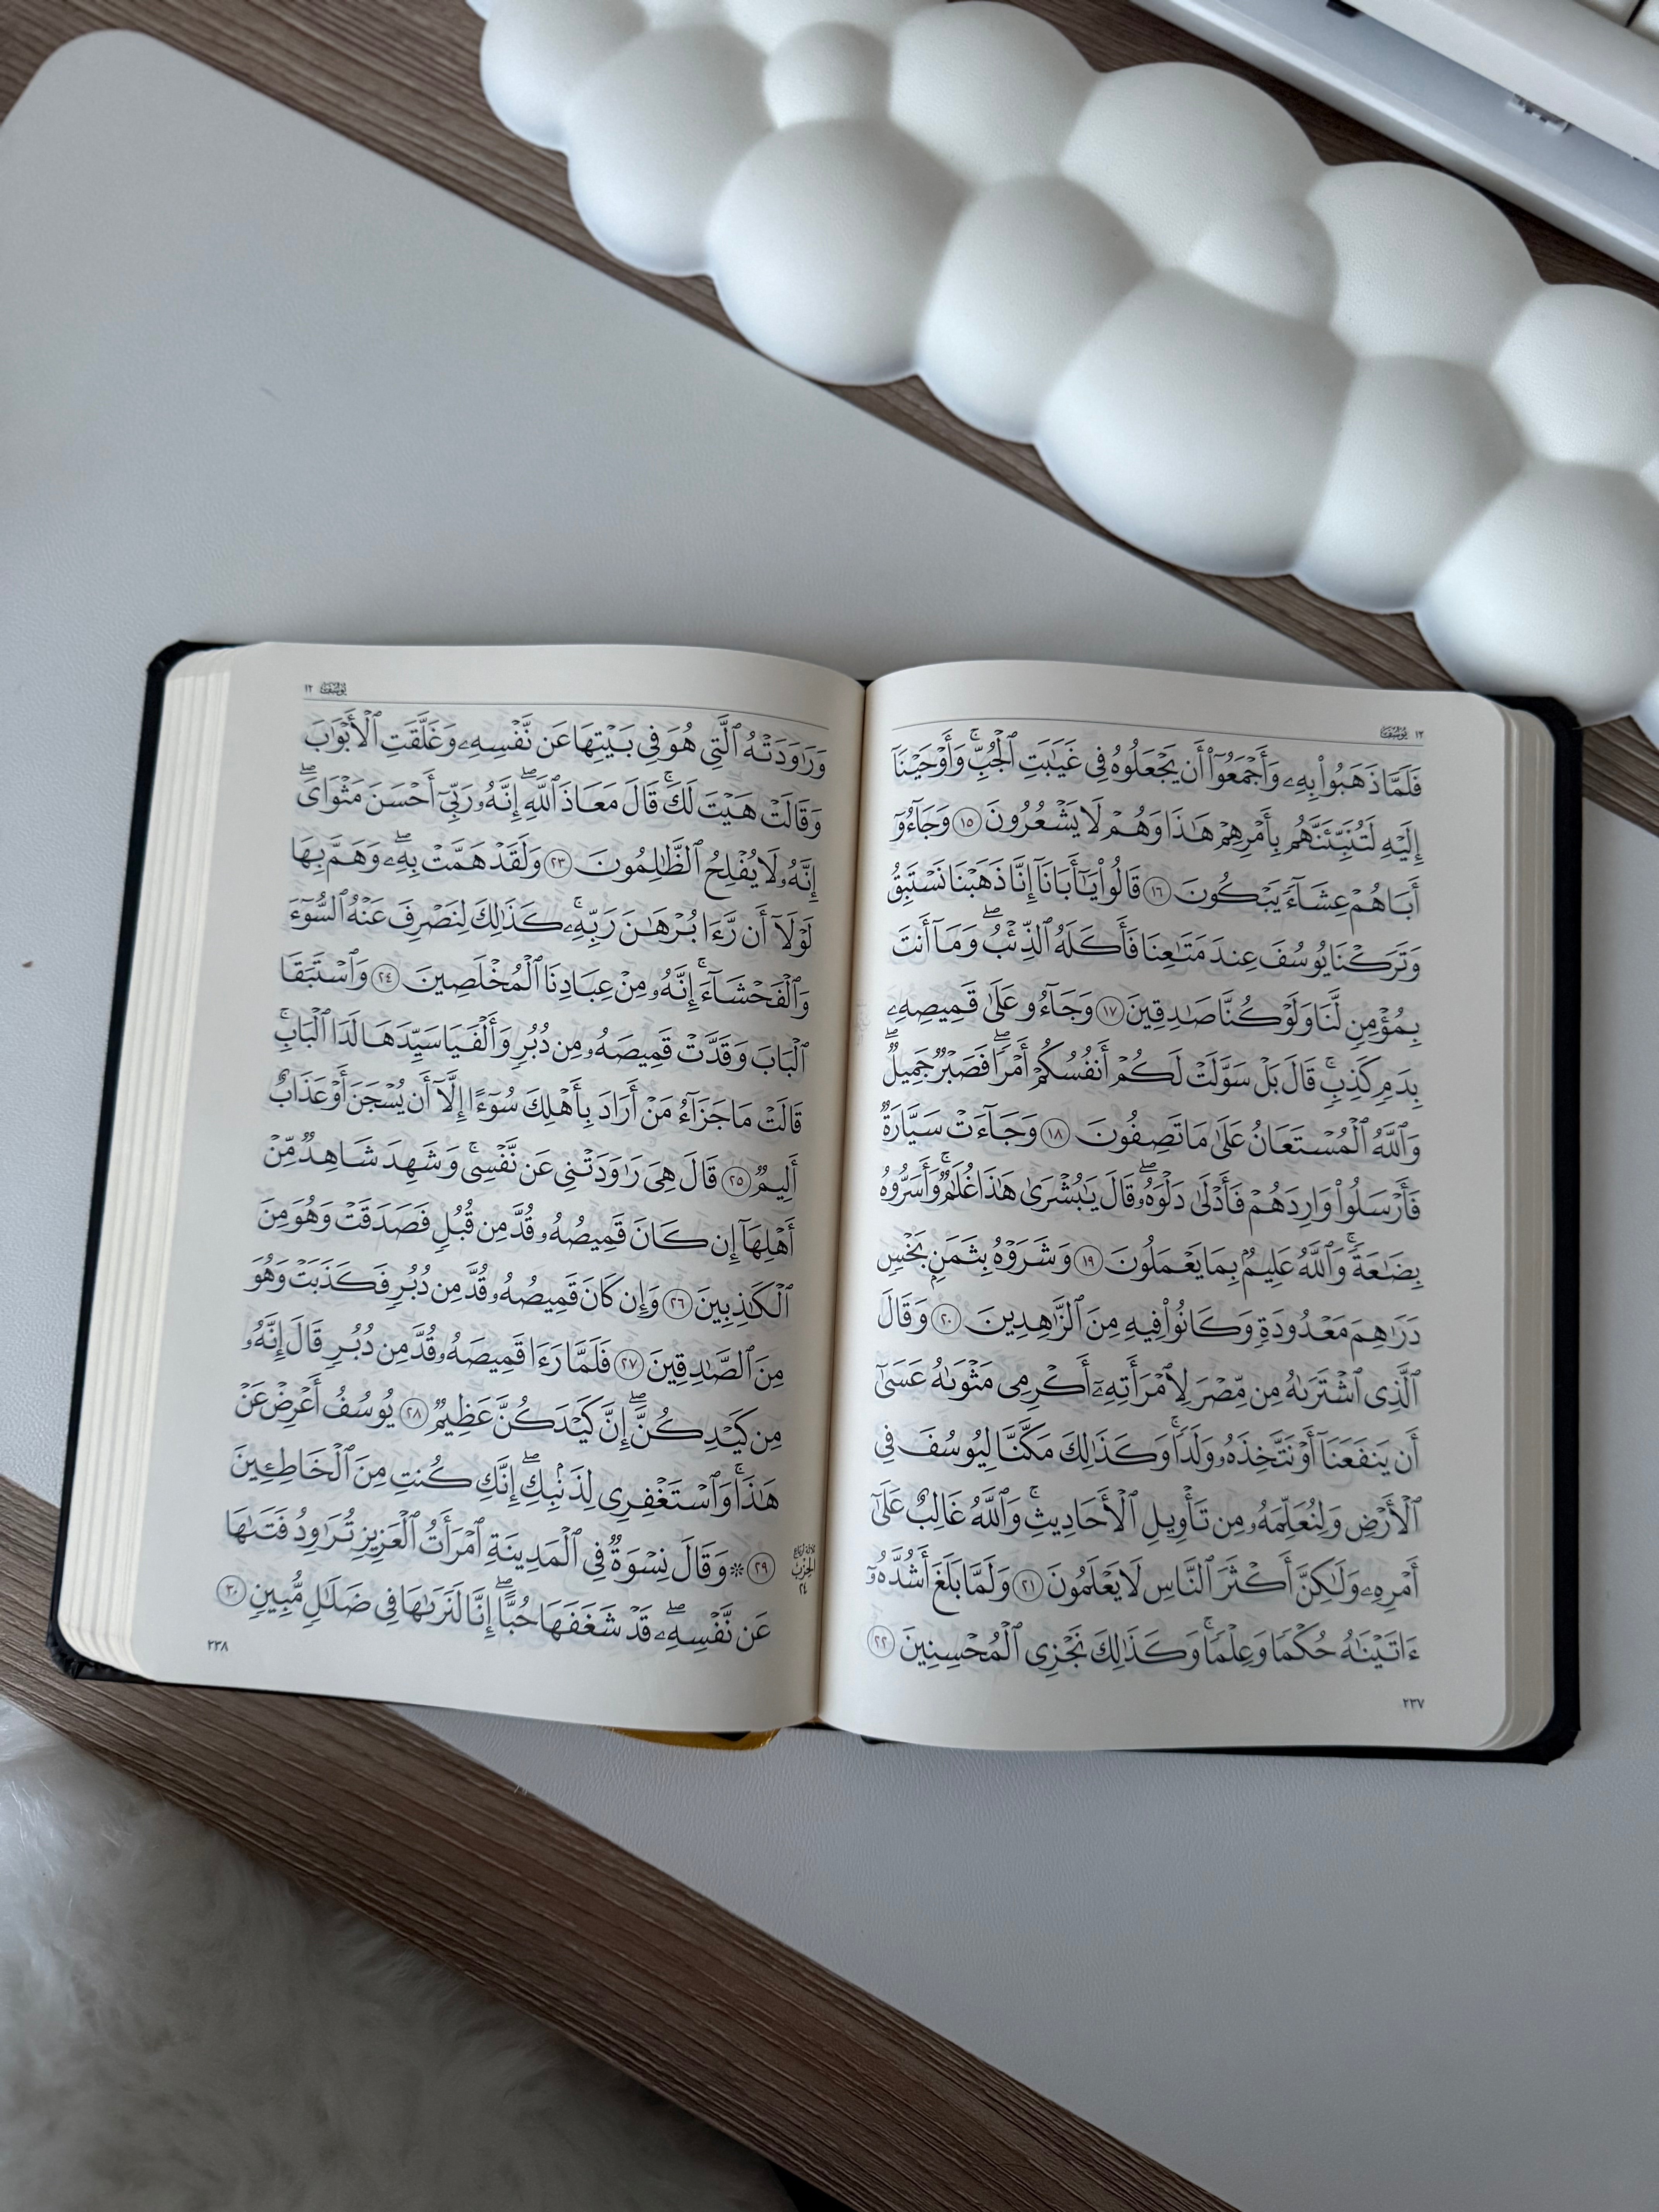 ١٢ يُوسُف
فَلَمَّا ذَهَبُوا۟ بِهِۦ وَأَجْمَعُوٓا۟ أَن يَجْعَلُوهُ فِى غَيَـٰبَتِ ٱلْجُبِّ ۚ وَأَوْحَيْنَآ
إِلَيْهِ لَتُنَبِّئَنَّهُم بِأَمْرِهِمْ هَـٰذَا وَهُمْ لَا يَشْعُرُونَ ١٥ وَجَآءُوٓ
أَبَاهُمْ عِشَآءً يَبْكُونَ ١٦ قَالُوا۟ يَـٰٓأَبَانَآ إِنَّا ذَهَبْنَا نَسْتَبِقُ
وَتَرَكْنَا يُوسُفَ عِندَ مَتَـٰعِنَا فَأَكَلَهُ ٱلذِّئْبُ ۖ وَمَآ أَنتَ
بِمُؤْمِنٍ لَّنَا وَلَوْ كُنَّا صَـٰدِقِينَ ١٧ وَجَآءُو عَلَىٰ قَمِيصِهِۦ
بِدَمٍ كَذِبٍ ۚ قَالَ بَلْ سَوَّلَتْ لَكُمْ أَنفُسُكُمْ أَمْرًا ۖ فَصَبْرٌ جَمِيلٌ ۖ
وَٱللَّهُ ٱلْمُسْتَعَانُ عَلَىٰ مَا تَصِفُونَ ١٨ وَجَآءَتْ سَيَّارَةٌ
فَأَرْسَلُوا۟ وَارِدَهُمْ فَأَدْلَىٰ دَلْوَهُۥ ۖ قَالَ يَـٰبُشْرَىٰ هَـٰذَا غُلَـٰمٌ ۚ وَأَسَرُّوهُ
بِضَـٰعَةً ۚ وَٱللَّهُ عَلِيمٌۢ بِمَا يَعْمَلُونَ ١٩ وَشَرَوْهُ بِثَمَنٍۭ بَخْسٍ
دَرَٰهِمَ مَعْدُودَةٍ وَكَانُوا۟ فِيهِ مِنَ ٱلزَّٰهِدِينَ ٢٠ وَقَالَ
ٱلَّذِى ٱشْتَرَىٰهُ مِن مِّصْرَ لِٱمْرَأَتِهِۦٓ أَكْرِمِى مَثْوَىٰهُ عَسَىٰٓ
أَن يَنفَعَنَآ أَوْ نَتَّخِذَهُۥ وَلَدًا ۚ وَكَذَٰلِكَ مَكَّنَّا لِيُوسُفَ فِى
ٱلْأَرْضِ وَلِنُعَلِّمَهُۥ مِن تَأْوِيلِ ٱلْأَحَادِيثِ ۚ وَٱللَّهُ غَالِبٌ عَلَىٰٓ
أَمْرِهِۦ وَلَـٰكِنَّ أَكْثَرَ ٱلنَّاسِ لَا يَعْلَمُونَ ٢١ وَلَمَّا بَلَغَ أَشُدَّهُۥٓ
ءَاتَيْنَـٰهُ حُكْمًا وَعِلْمًا ۚ وَكَذَٰلِكَ نَجْزِى ٱلْمُحْسِنِينَ ٢٢
٢٣٧
يُوسُف ١٢
وَرَٰوَدَتْهُ ٱلَّتِى هُوَ فِى بَيْتِهَا عَن نَّفْسِهِۦ وَغَلَّقَتِ ٱلْأَبْوَٰبَ
وَقَالَتْ هَيْتَ لَكَ ۚ قَالَ مَعَاذَ ٱللَّهِ ۖ إِنَّهُۥ رَبِّىٓ أَحْسَنَ مَثْوَاىَ ۖ
إِنَّهُۥ لَا يُفْلِحُ ٱلظَّـٰلِمُونَ ٢٣ وَلَقَدْ هَمَّتْ بِهِۦ ۖ وَهَمَّ بِهَا
لَوْلَآ أَن رَّءَا بُرْهَـٰنَ رَبِّهِۦ ۚ كَذَٰلِكَ لِنَصْرِفَ عَنْهُ ٱلسُّوٓءَ
وَٱلْفَحْشَآءَ ۚ إِنَّهُۥ مِنْ عِبَادِنَا ٱلْمُخْلَصِينَ ٢٤ وَٱسْتَبَقَا
ٱلْبَابَ وَقَدَّتْ قَمِيصَهُۥ مِن دُبُرٍ وَأَلْفَيَا سَيِّدَهَا لَدَا ٱلْبَابِ ۚ
قَالَتْ مَا جَزَآءُ مَنْ أَرَادَ بِأَهْلِكَ سُوٓءًا إِلَّآ أَن يُسْجَنَ أَوْ عَذَابٌ
أَلِيمٌ ٢٥ قَالَ هِىَ رَٰوَدَتْنِى عَن نَّفْسِى ۚ وَشَهِدَ شَاهِدٌ مِّنْ
أَهْلِهَآ إِن كَانَ قَمِيصُهُۥ قُدَّ مِن قُبُلٍ فَصَدَقَتْ وَهُوَ مِنَ
ٱلْكَـٰذِبِينَ ٢٦ وَإِن كَانَ قَمِيصُهُۥ قُدَّ مِن دُبُرٍ فَكَذَبَتْ وَهُوَ
مِنَ ٱلصَّـٰدِقِينَ ٢٧ فَلَمَّا رَءَا قَمِيصَهُۥ قُدَّ مِن دُبُرٍ قَالَ إِنَّهُۥ
مِن كَيْدِكُنَّ ۖ إِنَّ كَيْدَكُنَّ عَظِيمٌ ٢٨ يُوسُفُ أَعْرِضْ عَنْ
هَـٰذَا ۚ وَٱسْتَغْفِرِى لِذَنۢبِكِ ۖ إِنَّكِ كُنتِ مِنَ ٱلْخَاطِـِٔينَ
٢٩ ۞ وَقَالَ نِسْوَةٌ فِى ٱلْمَدِينَةِ ٱمْرَأَتُ ٱلْعَزِيزِ تُرَٰوِدُ فَتَىٰهَا
عَن نَّفْسِهِۦ ۖ قَدْ شَغَفَهَا حُبًّا ۖ إِنَّا لَنَرَىٰهَا فِى ضَلَـٰلٍ مُّبِينٍ ٣٠
ثلاثة أرباع
الحزب
٢٤
٢٣٨